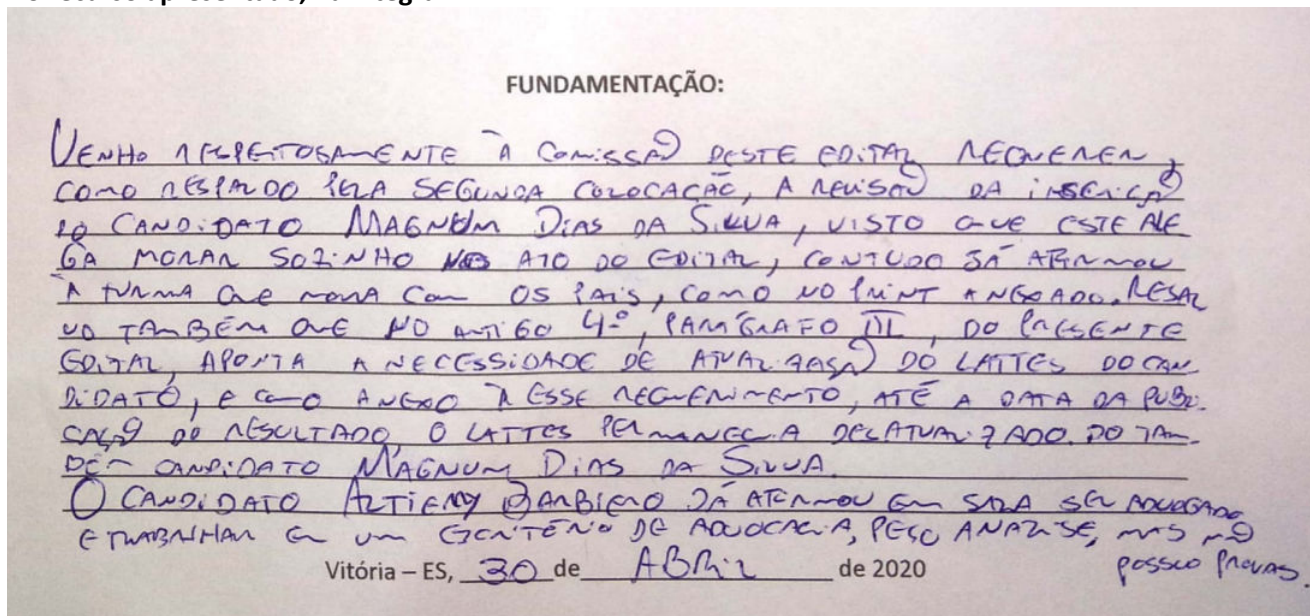 FUNDAMENTAÇÃO:
VENHO RESPEITOSAMENTE À COMISSÃO DESTE EDITAL REQUERER,
COMO RESPALDO PELA SEGUNDA COLOCAÇÃO, A REVISÃO DA INSCRIÇÃO
DO CANDIDATO MAGNUM DIAS DA SILVA, VISTO QUE ESTE ALE
GA MORAR SOZINHO NO ATO DO EDITAL, CONTUDO JÁ AFIRMOU
À TURMA QUE MORA COM OS PAIS, COMO NO PRINT ANEXADO. RESAL
VO TAMBÉM QUE NO ARTIGO 4º, PARÁGRAFO III, DO PRESENTE
EDITAL, APONTA A NECESSIDADE DE ATUALIZAÇÃO DO LATTES DO CAN
DIDATO, E COMO ANEXO À ESSE REQUERIMENTO, ATÉ A DATA DA PUBLI
CAÇÃO DO RESULTADO, O LATTES PERMANECIA DESATUALIZADO. DO TAM
BÉM CANDIDATO MAGNUM DIAS DA SILVA.
O CANDIDATO BARBIERO JÁ AFIRMOU EM SALA SER ADVOGADO
E TRABALHAR EM UM ESCRITÓRIO DE ADVOCACIA, PEÇO ANALISE, MAS NÃO
POSSUO PROVAS.
Vitória – ES, 30 de ABRIL de 2020